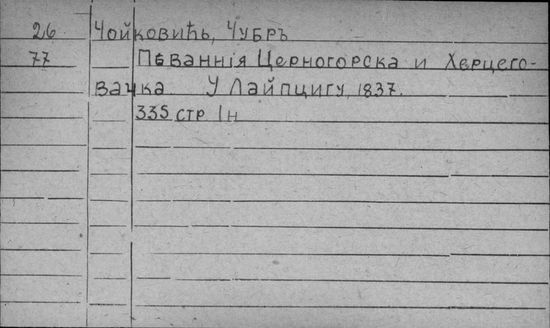 26 Чойковићь, Чубръ
77 Пѣваннія Церногорска и Херцего-
вачка. У Лайпцигу, 1837.
335 стр 1н